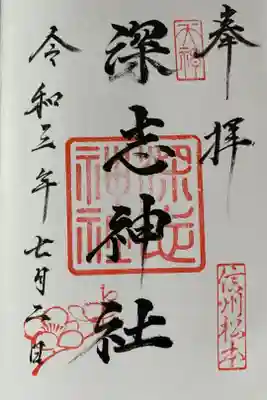 奉拝
天神
深志神社
深志神社
信州松本
令和三年七月二日